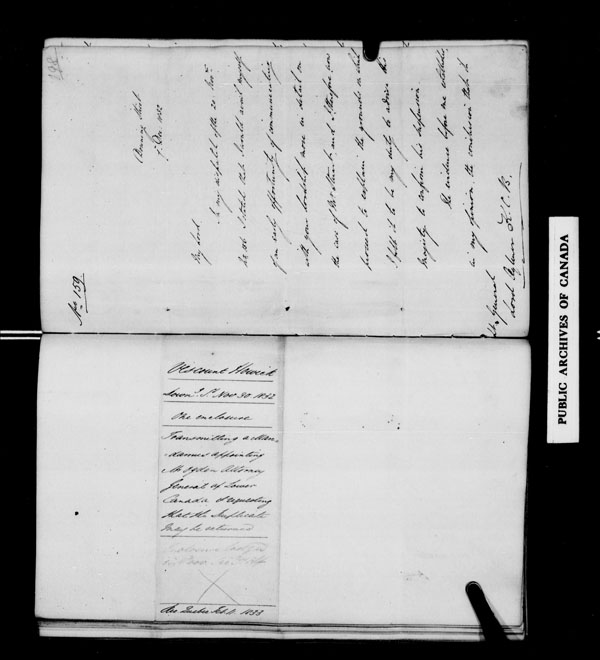 198
No. 159
Downing Street
7 Decr 1832
My Lord
In my despatch of the 22 Novr
No 152 I stated that I would avail myself
of an early opportunity of communicating
with your Lordship more in detail on
the case of Mr Stuart and I therefore now
proceed to explain the grounds on which
I felt it to be my duty to advise His
Majesty to confirm his suspension.
The evidence before me establishes
in my opinion the conclusion that in
Lt. General
Lord Aylmer K.C.B.
Viscount Howick
Downg. St. Novr 30 1832
One enclosure
Transmitting a Man-
-damus appointing
Mr Ogden Attorney
General of Lower
Canada & requesting
that the Duplicate
may be returned
Rec Quebec Feb 4. 1833
PUBLIC ARCHIVES OF CANADA